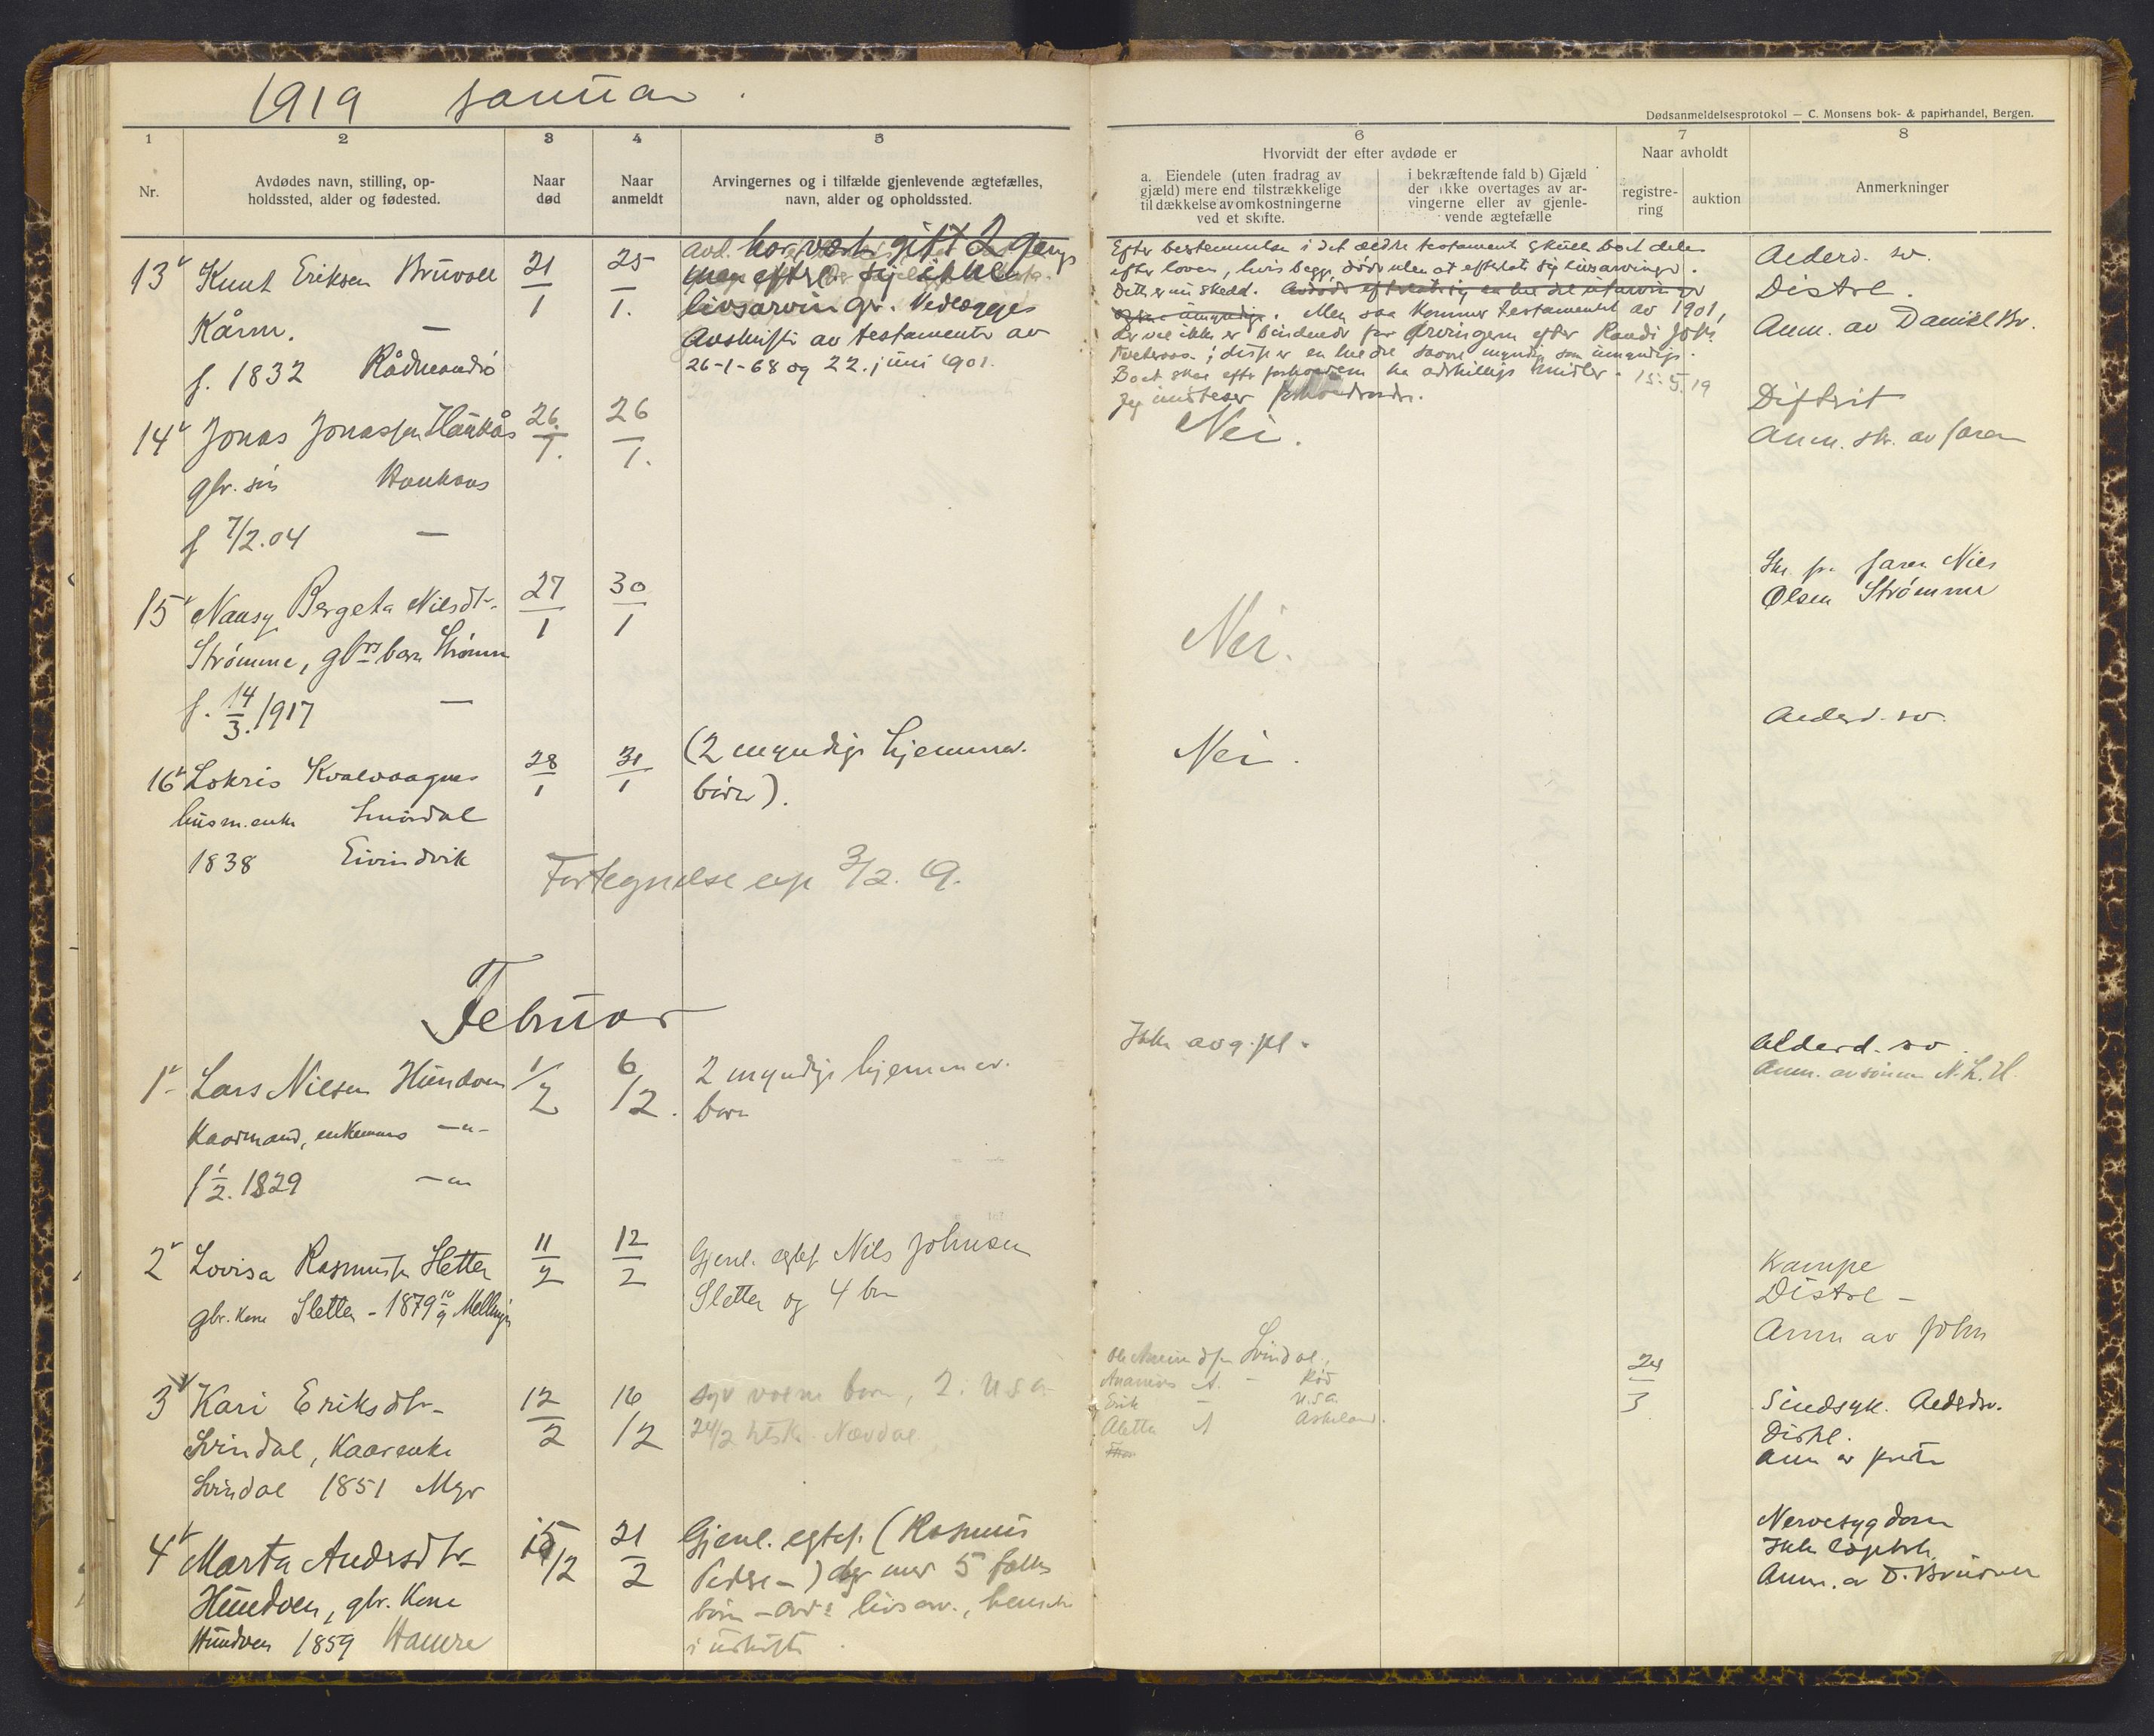 1919 Januar.
Dødsanmeldelsesprotokol — C. Monsens bok- & papirhandel, Bergen.
1 2 3 4 5 6 7 8
Nr.
Avdødes navn, stilling, op-
holdssted, alder og fødested.
Naar
død
Naar
anmeldt
Arvingernes og i tilfælde gjenlevende ægtefælles,
navn, alder og opholdssted.
Hvorvidt der efter avdøde er
a. Eiendele (uten fradrag av
gjæld) mere end tilstrækkelige
til dækkelse av omkostningerne
ved et skifte.
i bekræftende fald b) Gjæld
der ikke overtages av ar-
vingerne eller av gjenle-
vende ægtefælle
Naar avholdt
registre-
ring
auktion
Anmerkninger
13 Knut Eriksen Bruvoll
Kårm. —
f. 1832 Rådmandsø
21/1
25/1.
avd. har vært gift 2 gange
men efterl. sig ikke
livsarvingr. Vedlægges
Avskrift av testamente av
26-1-68 og 22. juni 1901.
Efter bestemmelse i det ældre testament skulle boet deles
efter loven, hvis begge døde uten at efterlate sig livsarvinger.
Dette er nu skedd.
Men saa kommer testamentet av 1901,
der vel ikke er bindende for arvingerne efter Randi Joh.
15.5.19
Alderd. sv.
Distrl.
Anm. av Daniel Br.
14 Jonas Jonassen Haukås
gbr. søn Haukaas
f 7/2.04 —
26/1.
26/1.
Nei.
Difterit
Anm. skr. av faren
15 Nansy Bergeta Nilsdtr.
Strømme, gbrs barn Strømme
f. 14/3.1917 —
27/1
30/1
Nei.
Skr. fra faren Nils
Olsen Strømme
16 Lokris Kvalvaagnes
husm.enke Smørdal
1838 Eivindvik
28/1
31/1
(2 myndige hjemmev.
børn).
Nei.
Alderd. sv.
Fortegnelse exp 3/2. 19.
Februar
1 Lars Nilsen Hundven
Kaarmand, enkemand —"—
f 1/2. 1829 —"—
1/2
6/12.
2 myndige hjemmev.
barn
Ikke avg.pl.
Alderd. sv.
Anm. av sønnen N. L. H.
2 Lovisa Rasmusdtr Sletten
gbr. kone Sletten - 1879 Mellingen
11/2
12/2
Gjenl. egtef Nils Johnsen
Sletten og 4 bn
Krampe
Distrl —
Anm av John
3 Kari Eriksdtr.
Svindal, Kaarenke
Svindal 1851 Mgr
12/2
16/12
syv voksne barn, 2 i USA
24/2 tilsk. Nævdal
Svindal,
Ananias A. — Rød
Erik — U.S.A.
Aletta A Askeland.
24/3
Sindsyk. Alderdsv.
Distrl.
Anm av
4 Marta Andersdtr.
Hundven, gbr. kone
Hundven 1859 Hamre
15/12
21/2
Gjenl. egtef. (Rasmus
Peders—) og med 5 fælles
børn — avds livsarv., hensitter
i uskiftet.
Nervesygdom
Ikke lægebeh.
Anm. av D. Bruvoll